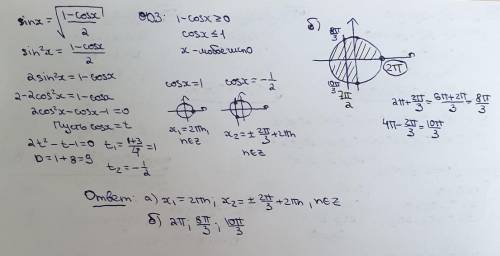 sinx = √(1-cosx)/2
sin²x = (1-cosx)/2
2sin²x = 1-cosx
2-2cos²x = 1-cosx
2cos²x-cosx-1=0
Пусть cosx=t
2t²-t-1=0
D=1+8=9
t₁ = (1+3)/4 = 1
t₂ = -1/2
ОДЗ: 1-cosx ≥ 0
cosx ≤ 1
x - любое число
cosx=1
x₁=2πn,
n∈Z
cosx = -1/2
x₂ = ± 2π/3 + 2πn
n∈Z
б)
8π/3
10π/3
7π/2
2π
2π + 2π/3 = (6π+2π)/3 = 8π/3
4π - 2π/3 = 10π/3
Ответ: а) x₁ = 2πn, x₂ = ± 2π/3 + 2πn, n∈Z
б) 2π; 8π/3; 10π/3